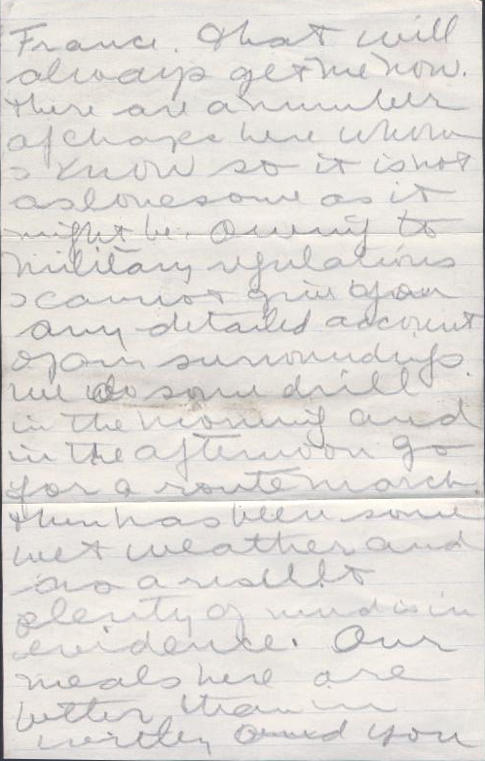 France. That will
always get me now.
There are a number
of chaps here whom
I know so it is not
as lonesome as it
might be. Owing to
military regulations
I cannot give you
any detailed account
of our surroundings.
We do some drill
in the morning and
in the afternoon go
for a route march.
There has been some
wet weather and
as a result
plenty of mud is in
evidence. Our
meals here are
better than in
Witley and you